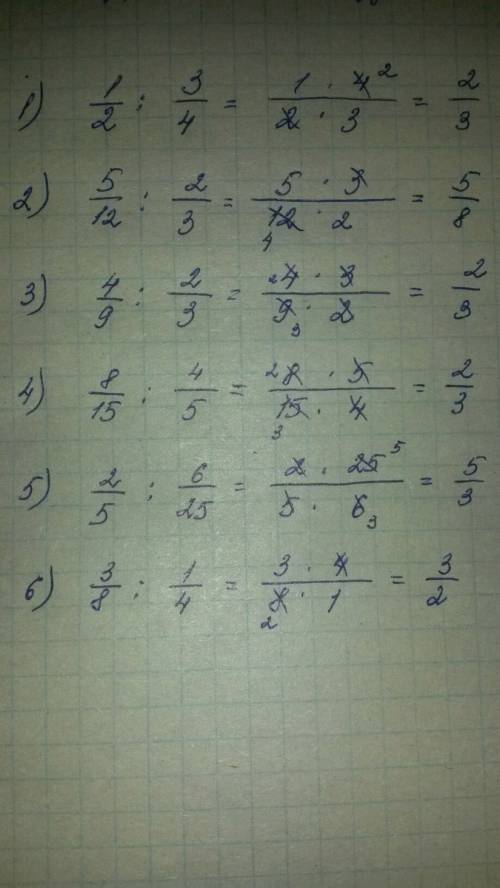 1) 1/2 : 3/4 = 1 · 4 2 / 2 · 3 = 2/3
2) 5/12 : 2/3 = 5 · 3 / 12 4 · 2 = 5/8
3) 4/9 : 2/3 = 2 4 · 3 / 9 3 · 2 = 2/3
4) 8/15 : 4/5 = 2 8 · 5 / 15 3 · 4 = 2/3
5) 2/5 : 6/25 = 2 · 25 5 / 5 · 6 3 = 5/3
6) 3/8 : 1/4 = 3 · 4 / 8 2 · 1 = 3/2